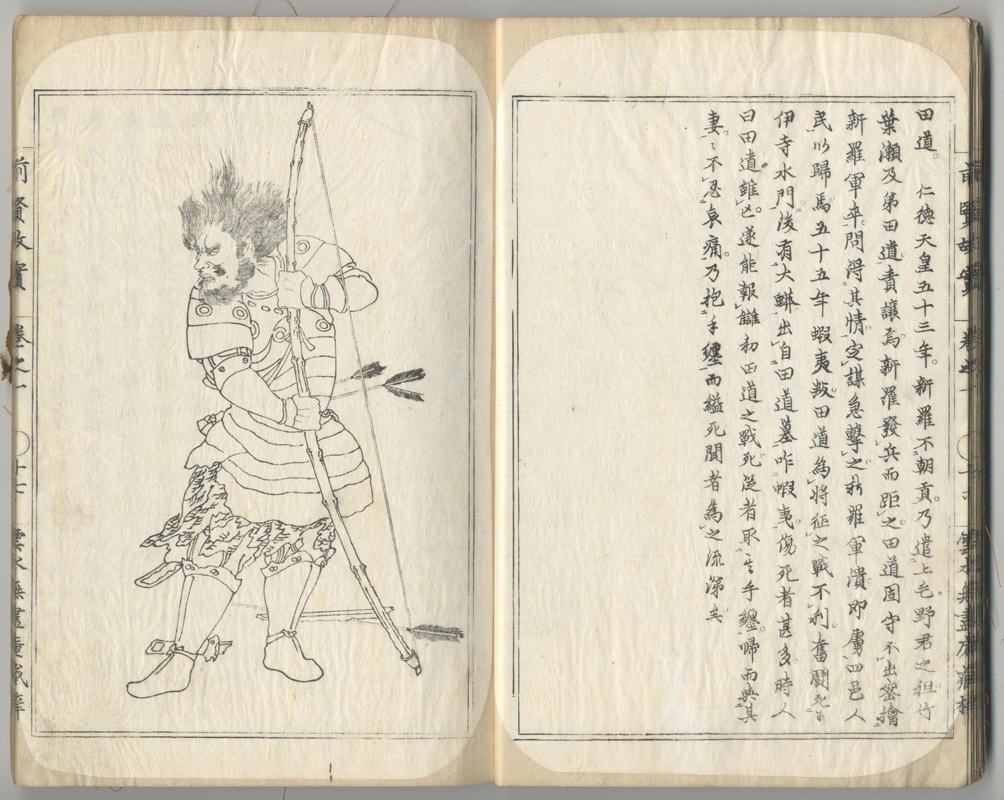 田道。　仁徳天皇五十三年。新羅不朝貢。乃遣上毛野君之祖竹
葉瀬及弟田道責譲焉新羅發兵而距之。田道固守不出密擒
新羅軍卒。問得其情定謀急擊之新羅軍潰即虜四邑人
民以歸焉五十五年蝦夷叛田道為將征之戰不利。奮鬪死
伊寺水門後有大蟒出自田道墓咋蝦夷傷死者甚多時人
曰田道雖亡。遂能報讎初田道之戰死從者取其手纏。帰而與其
妻。々不忍哀痛。乃抱手纏而縊死聞者為之流涕矣
前賢故實　卷之一　〇十七　雲水無盡庵藏梓